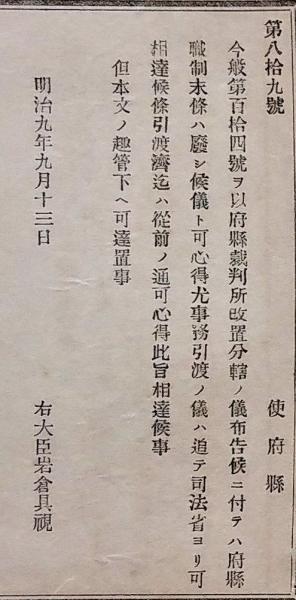 第八拾九號
使府縣
今般第百拾四號ヲ以府縣裁判所改置分轄ノ儀布告候ニ付テハ府縣
職制末條ハ廢シ候儀ト可心得尤事務引渡ノ儀ハ追テ司法省ヨリ可
相達候條引渡濟迄ハ從前ノ通可心得此旨相達候事
但本文ノ趣管下ヘ可達置事
明治九年九月十三日
右大臣岩倉具視